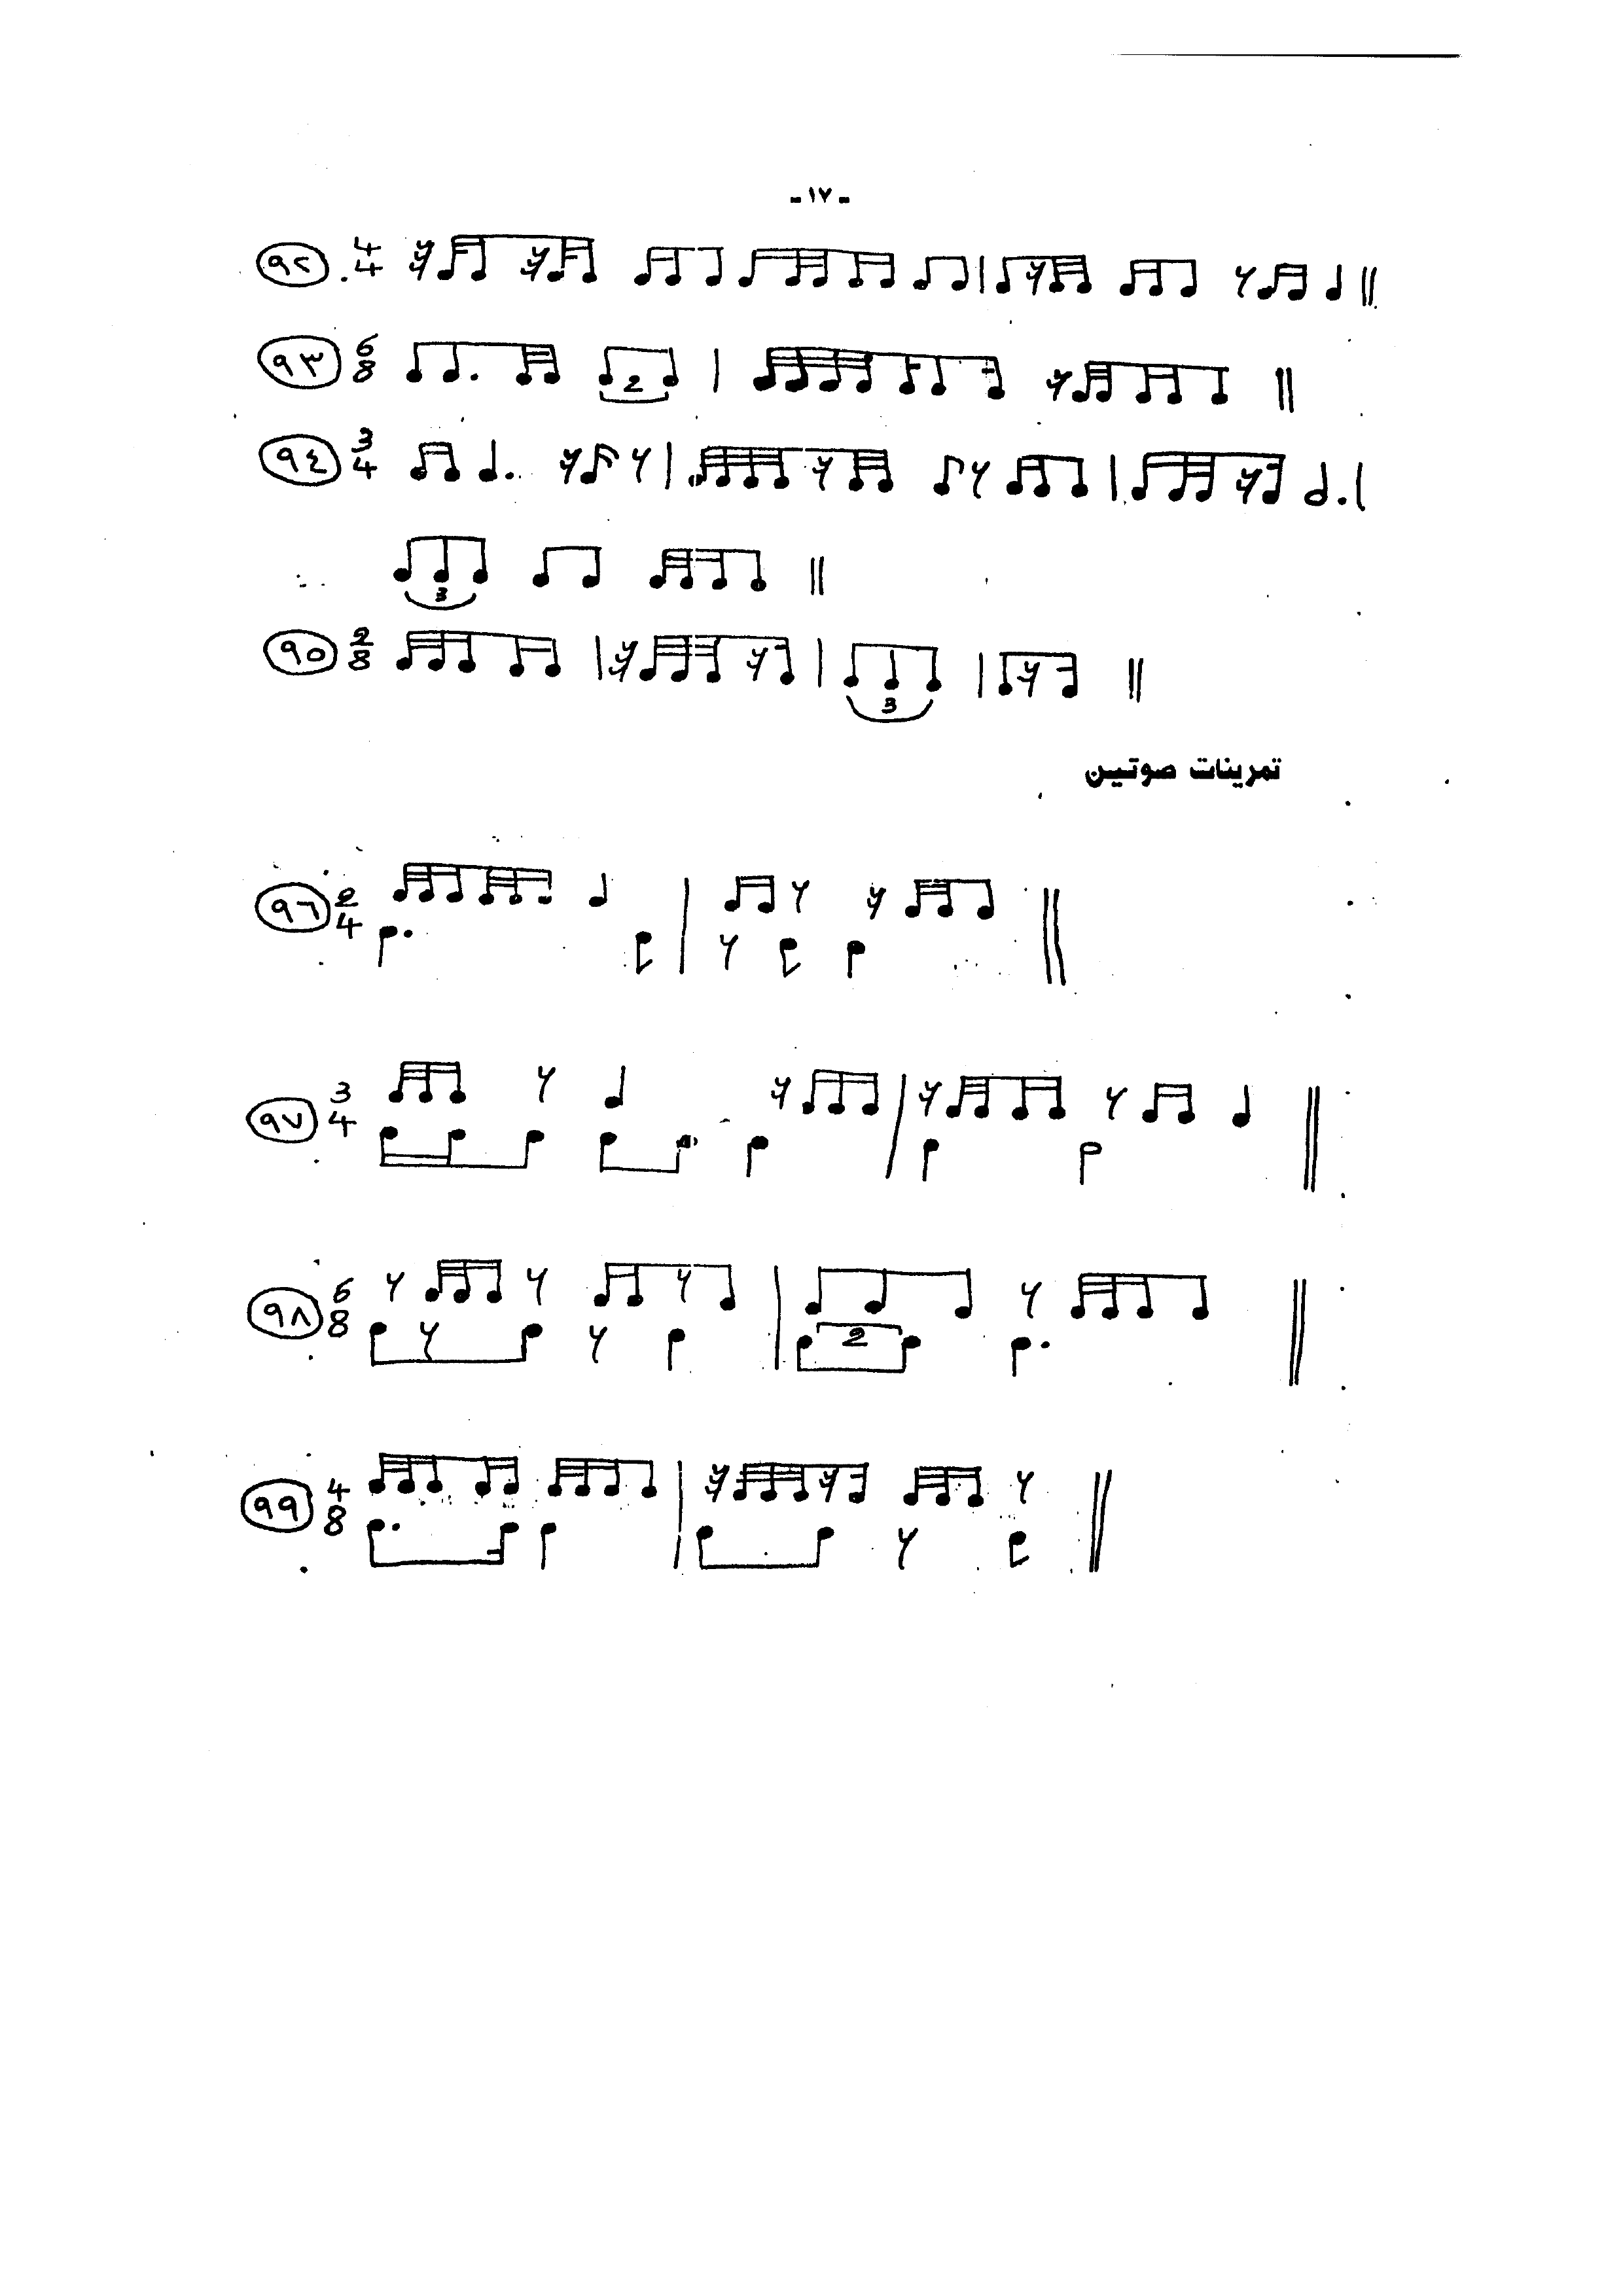 - ١٧ -
٩٢ 4/4
٩٣ 6/8
2
٩٤ 3/4
3
٩٥ 2/8
3
تمرينات صوتين
٩٦ 2/4
٩٧ 3/4
٩٨ 6/8
2
٩٩ 4/8